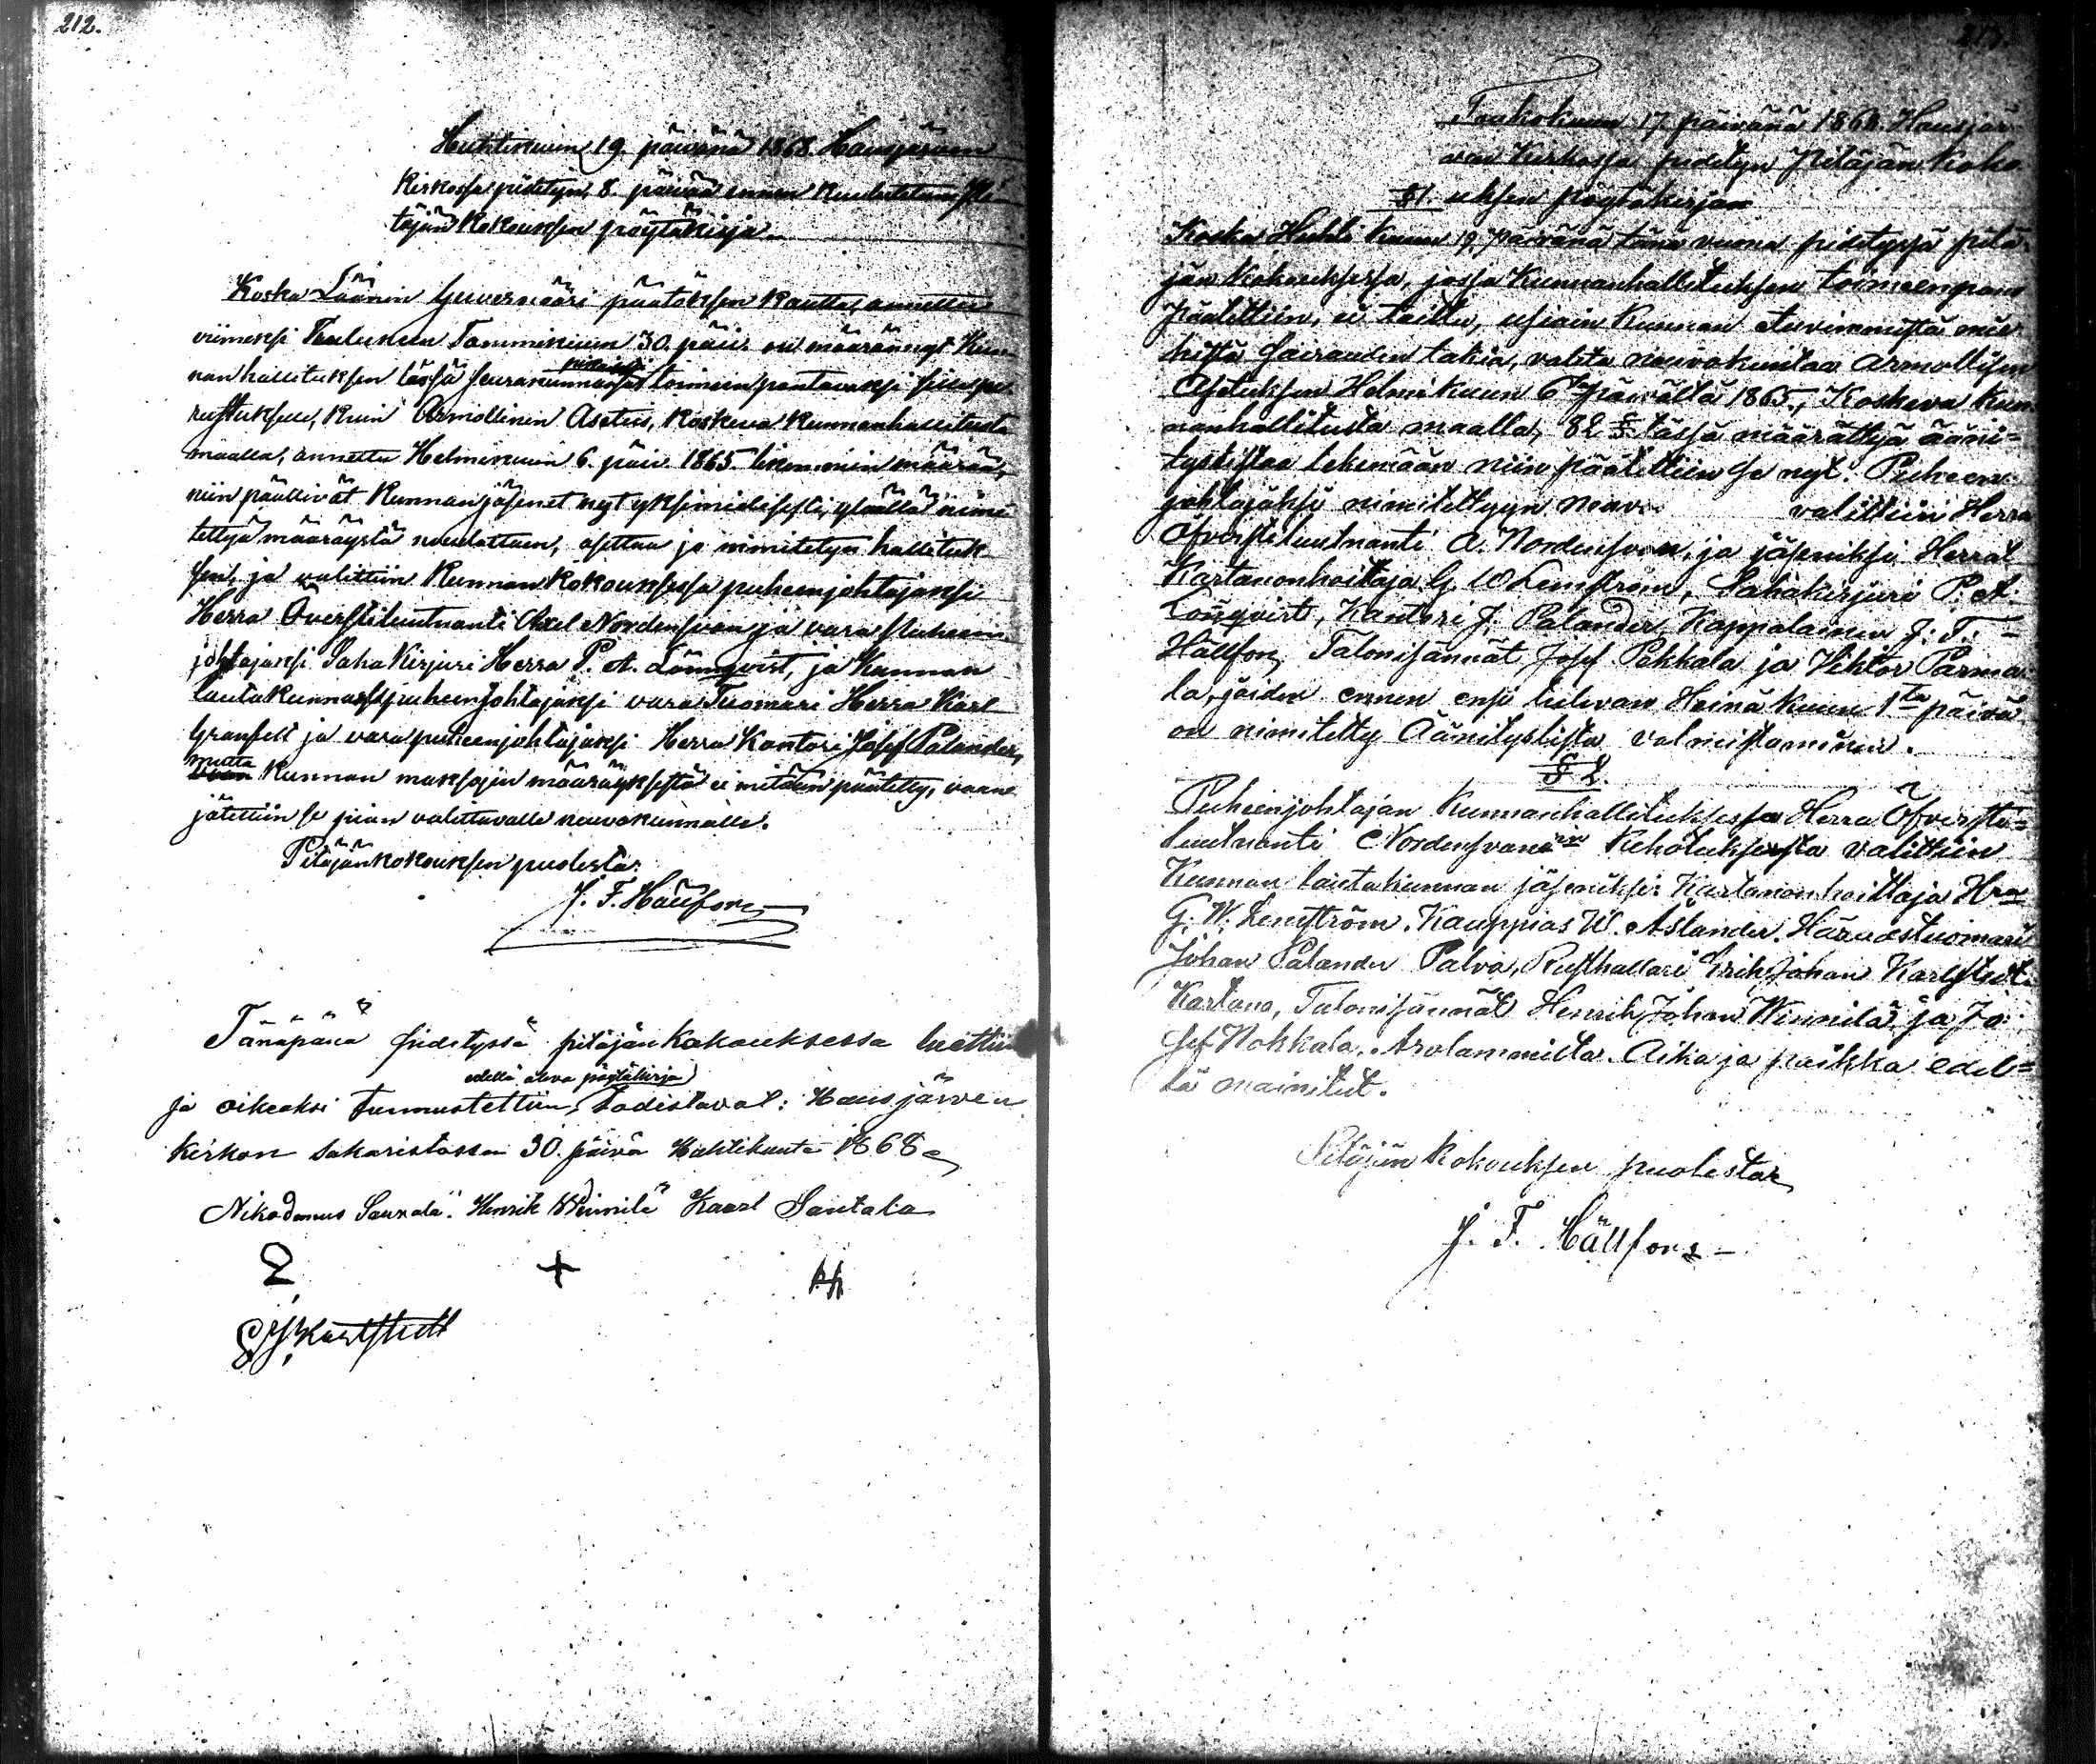 212.
Huhtikuun 19. päivänä 1868 Hausjärven
Kirkossa pidetyn, 8. päivää ennen kuulutetun Pi-
täjän Kokouksen pöytäkirja.
Koska Läänin Guvernööri päätöksen kautta, annettu
viimeksi Tammikuun 30. päiv. on määrännyt Kun-
nan hallituksen tässä seurakunnassa toimeenpantavaksi sillä pe-
rustuksella, kuin Armollinen Asetus, koskeva kunnanhallitusta
maalla, annettu Helmikuun 6. päiv. 1865. likemmin määrää,
niin päättivät Kunnanjäsenet nyt yksimielisesti, ylläällä nimi-
tettyä määräystä noudattaen, asettaa jo nimitetyn hallituk-
sen, ja valittiin Kunnan Kokouksessa puheenjohtajaksi
Herra Överstiluutnanti Axel Nordensvan ja vara puheen-
johtajaksi Saha Kirjuri Herra P. A. Lönnqvist, ja Kunnan
lautakunnassa puheenjohtajaksi vara Tuomari Herra Karl
Granfelt ja vara puheenjohtajaksi Herra Kantori Josef Palander,
mutta Kunnan maksojen määräyksestä ei mitään päätetty, vaan
jätettiin se pian valittavalle neuvokunnalle.
Pitäjänkokouksen puolesta:
J. F. Hällfors
Tänäpänä pidetyssä pitäjänkokouksessa luettiin
edellä oleva pöytäkirja
ja oikeaksi tunnustettiin, todistavat: Hausjärven
kirkon sakaristossa 30. päivä Huhtikuuta 1868
Nikodemus Saurala. Henrik Winnilä Kaarl Santala
E J Karlstedt
213.
Toukokuun 17. päivänä 1868. Hausjär-
ven Kirkossa pidetyn Pitäjän koko
§ 1. uksen pöytäkirja
Koska Huhti kuun 19. päivänä tänä vuona pidetyssä pitä-
jän kokouksessa, jossa Kunnanhallituksen toimeenpano
päätettiin, ei taittu, usiain Kunnan etevimmistä mie-
histä sairauden takia, valita neuvokuntaa Armollisen
Asetuksen Helmikuun 6ta päivältä 1865, Koskeva Kun-
nanhallitusta maalla, 82 §. tässä määrättyjä ääni-
tyslistaa tekemään niin päätettiin se nyt. Puheen-
johtajaksi nimitettyyn neuv. valittiin Herra
Öfverstiluutnanti A. Nordensvan, ja jäseniksi Herrat
Kartanonhoitaja G. W. Lemström, Sahakirjuri P. A.
Lönnqvist, Kantori J. Palander, Kappalainen J. F.
Hällfors, Talonisännät Josef Pakkala ja Viktor Parma-
la, joiden ennen ensi tulevan Heinäkuun 1tä päivä
on nimitetty Äänityslista valmistaminen.
§ 2.
Puheenjohtajan Kunnanhallituksessa Herra Öfversti-
luutnanti Nordensvanin kehoituksesta valittiin
Kunnan lautakunnan jäseniksi: Kartanonhoittaja Hra
G. W. Lemström. Kauppias W. Åslander. Häradstuomari
Johan Palander Palva, Rusthollari Erik Johan Karlstedt.
Kartano, Talonisännät Henrik Johan Winnilä ja Jo-
sef Nokkala. Arolammilta. Aika ja paikka edel-
lä mainitut.
Pitäjän Kokouksen puolesta
J. F. Hällfors